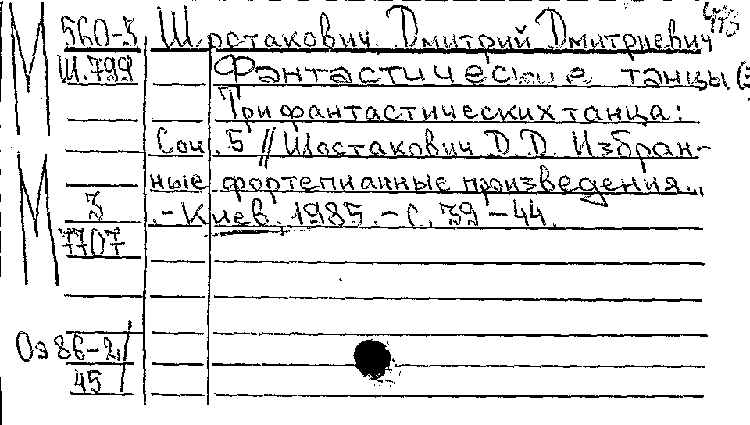 М 560-3 Шостакович Дмитрий Дмитриевич
Ш.799 Фантастические танцы (
Три фантастических танца:
Соч. 5 // Шостакович Д.Д. Избран-
ные фортепианные произведения..
М 3 .-Киев. 1985.-С. 39-44.
7707
Оз 86-2/
45